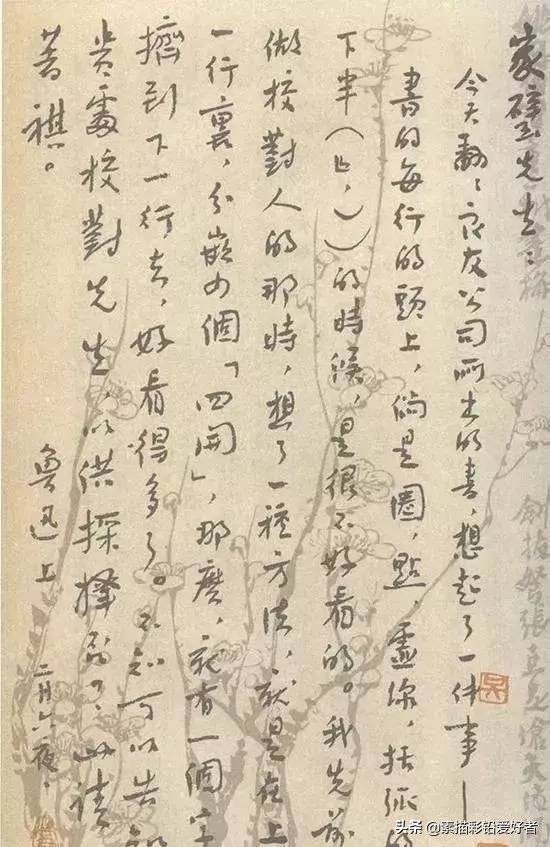 家璧先生：
今天翻々良友公司所出的書，想起了一件事——
書的每行的頭上，倘是圈，點，虛線，括弧的
下半（﹂，））的時候，是很不好看的。我先前
做校對人的那時，想了一種方法，就是在上
一行裏，分嵌四個「四開」，那麽，就有一個字
擠到下一行去，好看得多了。不知可以告知
貴處校對先生，以供採擇否？此請
著祺。
魯迅上 二月六夜。
头条 @素描彩铅爱好者